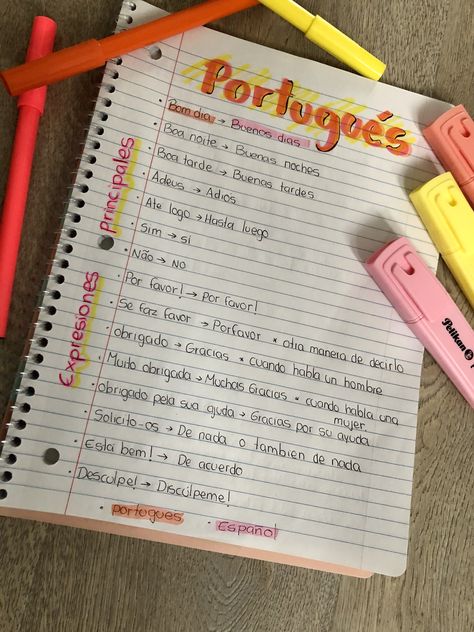 Português
Expresiones Principales
· Bom dia → Buenos dias!
· Boa noite → Buenas noches
· Boa tarde → Buenas tardes
· Adeus → Adiós
· Ate logo → Hasta luego
· Sim → si
· Não → No
· Por favor! → Por favor!
· Se faz favor → Porfavor * otra manera de decirlo
· obrigado → Gracias * cuando habla un hombre
· Muito obrigada → Muchas Gracias * cuando habla una
mujer.
· Obrigado pela sua ajuda → Gracias por su ayuda
· Solicito-os → De nada o tambien de nada
· Está bem! → De acuerdo
· Desculpe! → Discúlpeme!
· portugues · Español
Pelikan